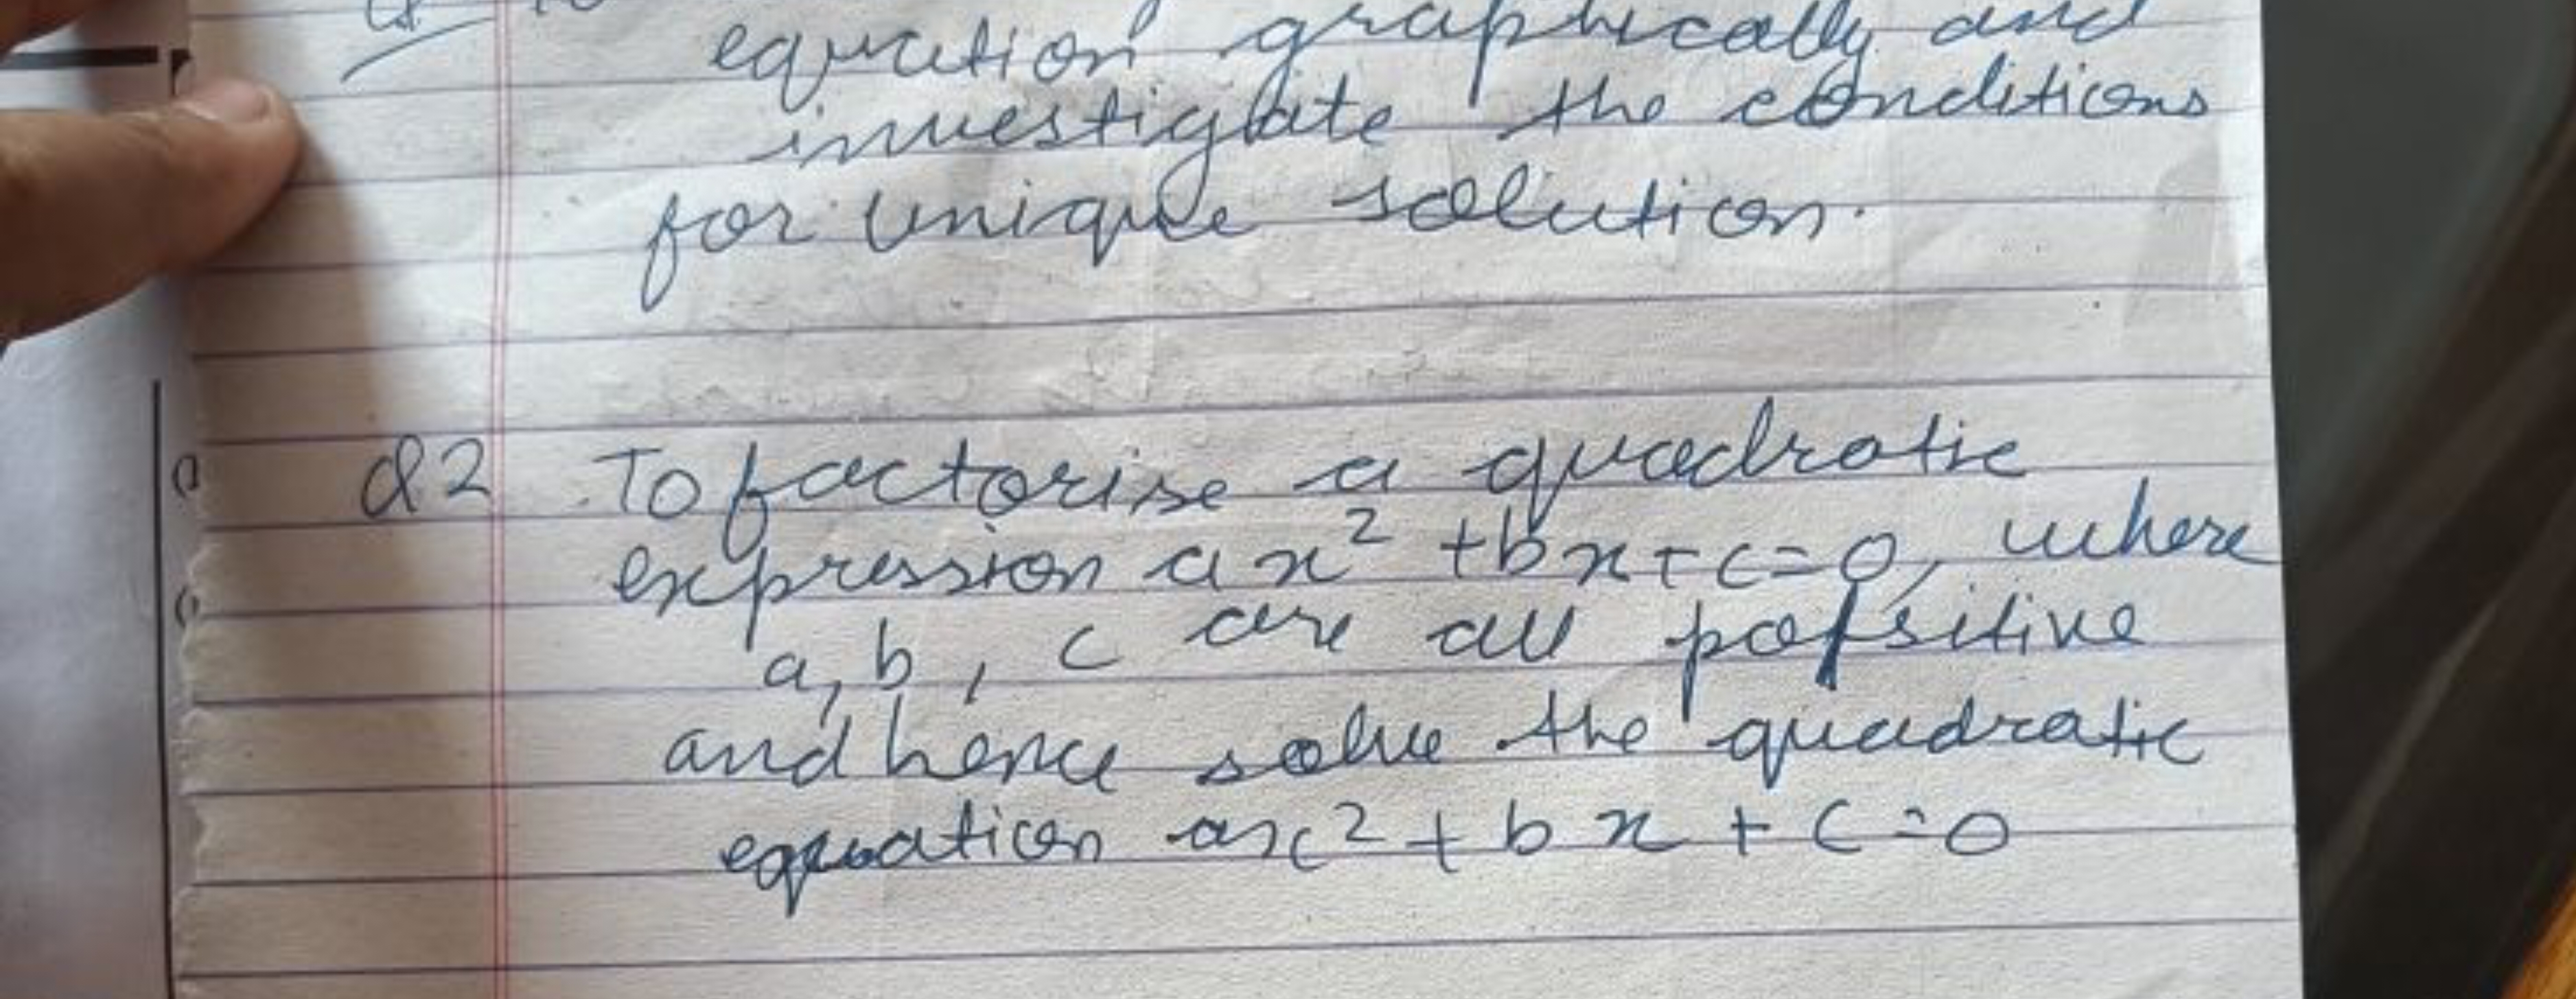 equation graphically and
investigate the conditions
for unique solution.
Q2 To factorise a quadratic
expression ax² + bx + c = 0, where
a, b, c are all positive
and hence solve the quadratic
equation ax² + bx + c = 0